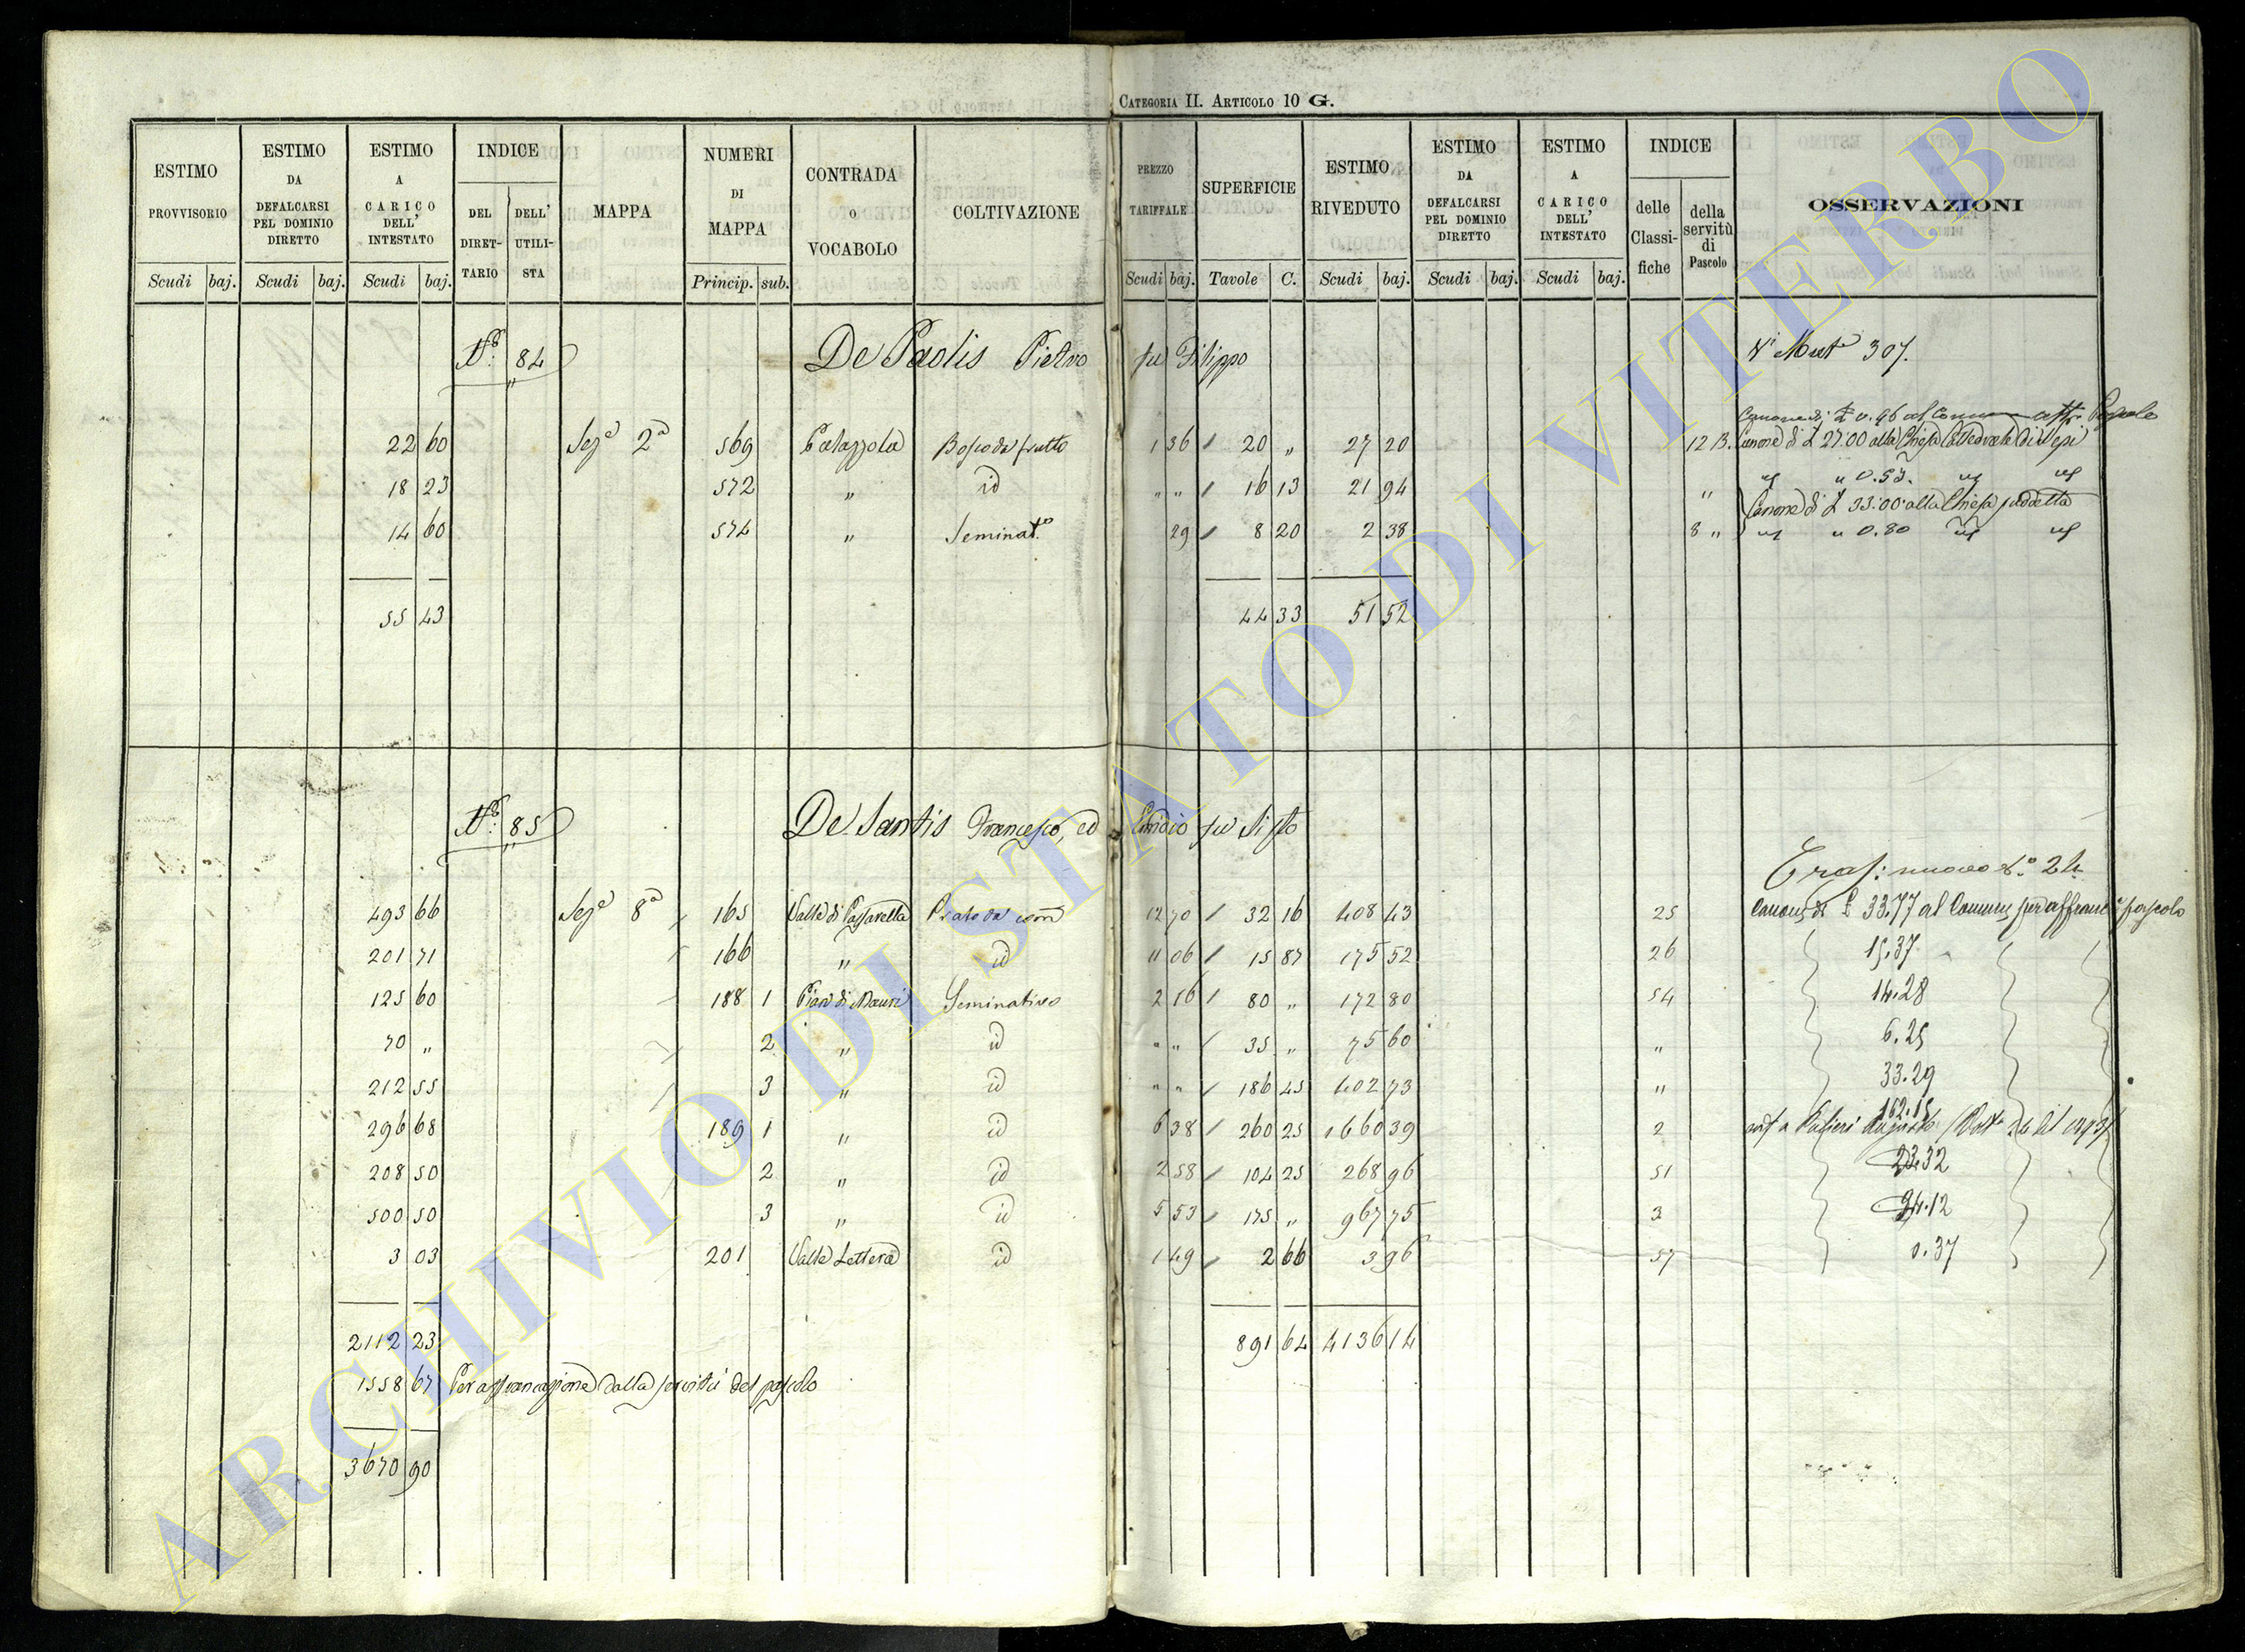 CATEGORIA II. ARTICOLO 10 G.
ESTIMO PROVVISORIO Scudi baj. ESTIMO DA DEFALCARSI PEL DOMINIO DIRETTO Scudi baj. ESTIMO A CARICO DELL' INTESTATO Scudi baj. INDICE DEL DIRETTARIO DELL' UTILISTA MAPPA NUMERI DI MAPPA Princip. sub. CONTRADA O VOCABOLO COLTIVAZIONE PREZZO TARIFFALE Scudi baj. SUPERFICIE Tavole C. ESTIMO RIVEDUTO Scudi baj. ESTIMO DA DEFALCARSI PEL DOMINIO DIRETTO Scudi baj. ESTIMO A CARICO DELL' INTESTATO Scudi baj. INDICE delle Classifiche della servitù di Pascolo OSSERVAZIONI
N° 84 De Paolis Pietro fu Filippo
22 60 Sez.e 2a 569 Bosco da frutto 1 36 / 20 „ 27 20 12 B. Canone di £ 27.00 alla Chiesa Cattedrale di Nepi
18 23 572 „ id „ „ / 16 13 21 94 „ „ 0.57.
14 60 574 „ Seminat.o 29 / 8 20 2 38 8 „ Canone di £ 33.00 alla Chiesa suddetta
„ 0.80
55 43 44 33 51 52
N° 85 De Santis Francesco, ed Emidio fu Sisto
493 66 Sez.e 8a 165 Prato 12 70 / 32 16 408 43 25 Canone di £ 33.77 al Comune per affranc.e pascolo
201 71 166 „ id 11 06 / 15 87 175 52 26 15.37
125 60 188 1 Seminativo 2 16 / 80 „ 172 80 54 14.28
70 „ 2 „ id „ „ / 35 „ 75 60 „ 6.25
212 55 3 „ id „ „ / 186 45 402 73 „ 33.29
296 68 189 1 „ id 6 38 / 260 25 1660 39 2 162.15
208 50 2 „ id 2 58 / 104 25 268 96 51
500 50 3 „ id 5 53 / 175 „ 967 75 3
3 03 201 Valle Lettera id 1 49 / 2 66 3 96 57 0.37
2112 23 891 64 4136 14
1558 67 Per affrancazione dalla servitù del pascolo
3670 90
ARCHIVIO DI STATO DI VITERBO